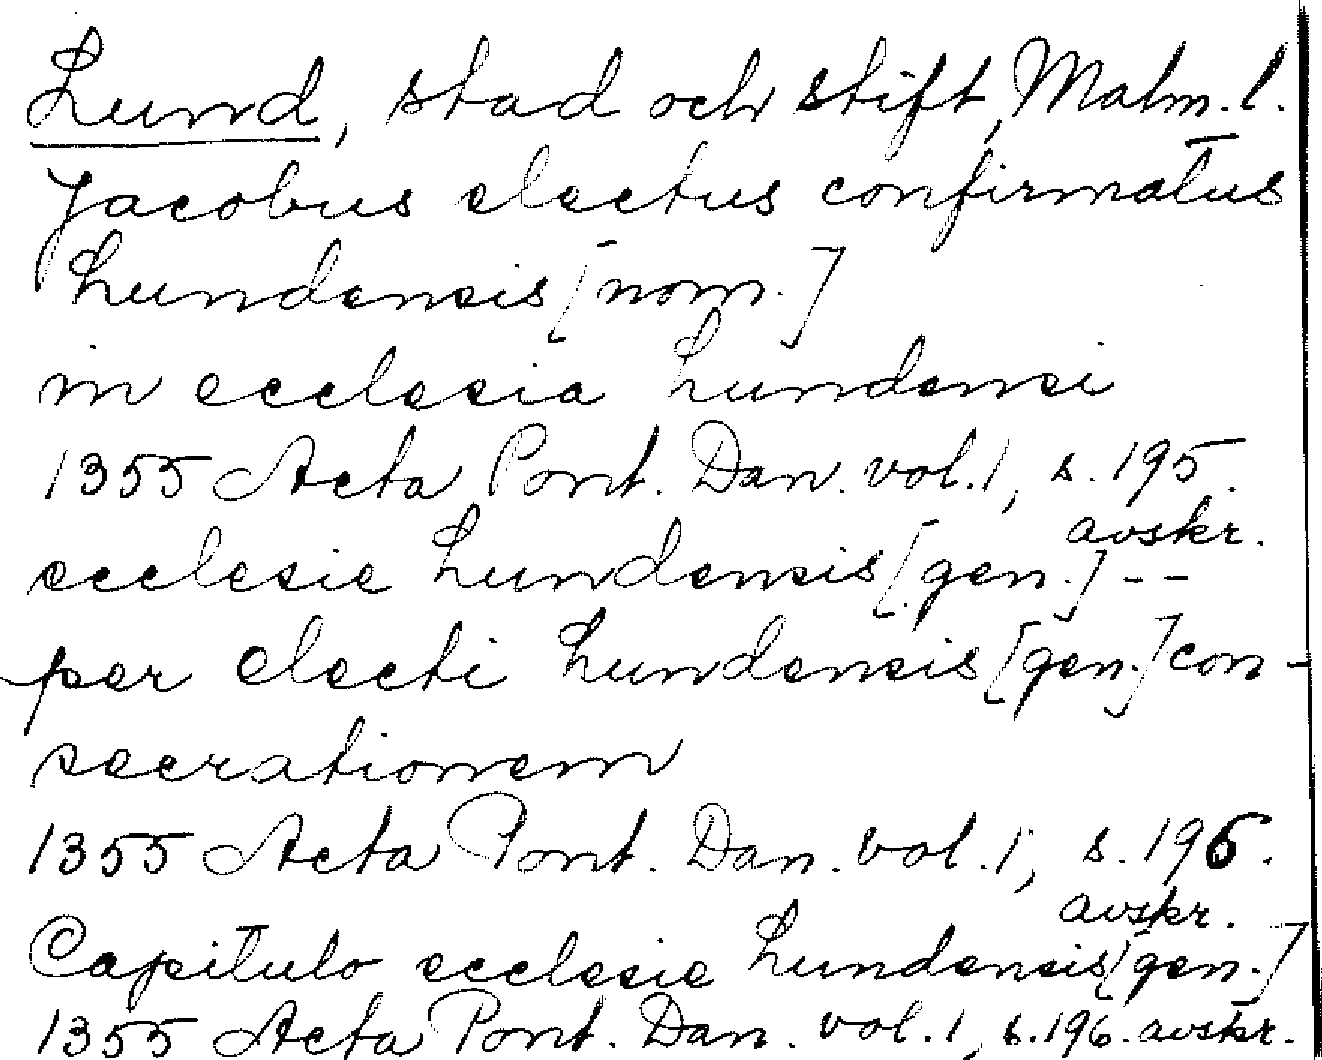 Lund, stad och stift, Malm. l.
Jacobus electus confirmatus
Lundensis [nom.]
in ecclesia Lundensi
1355 Acta Pont. Dan. vol. 1, s. 195.
avskr.
ecclesie Lundensis [gen.] --
per electi Lundensis [gen.] con-
secrationem
1355 Acta Pont. Dan. vol. 1, s. 196.
avskr.
Capitulo ecclesie Lundensis [gen.]
1355 Acta Pont. Dan. vol. 1, s. 196. avskr.